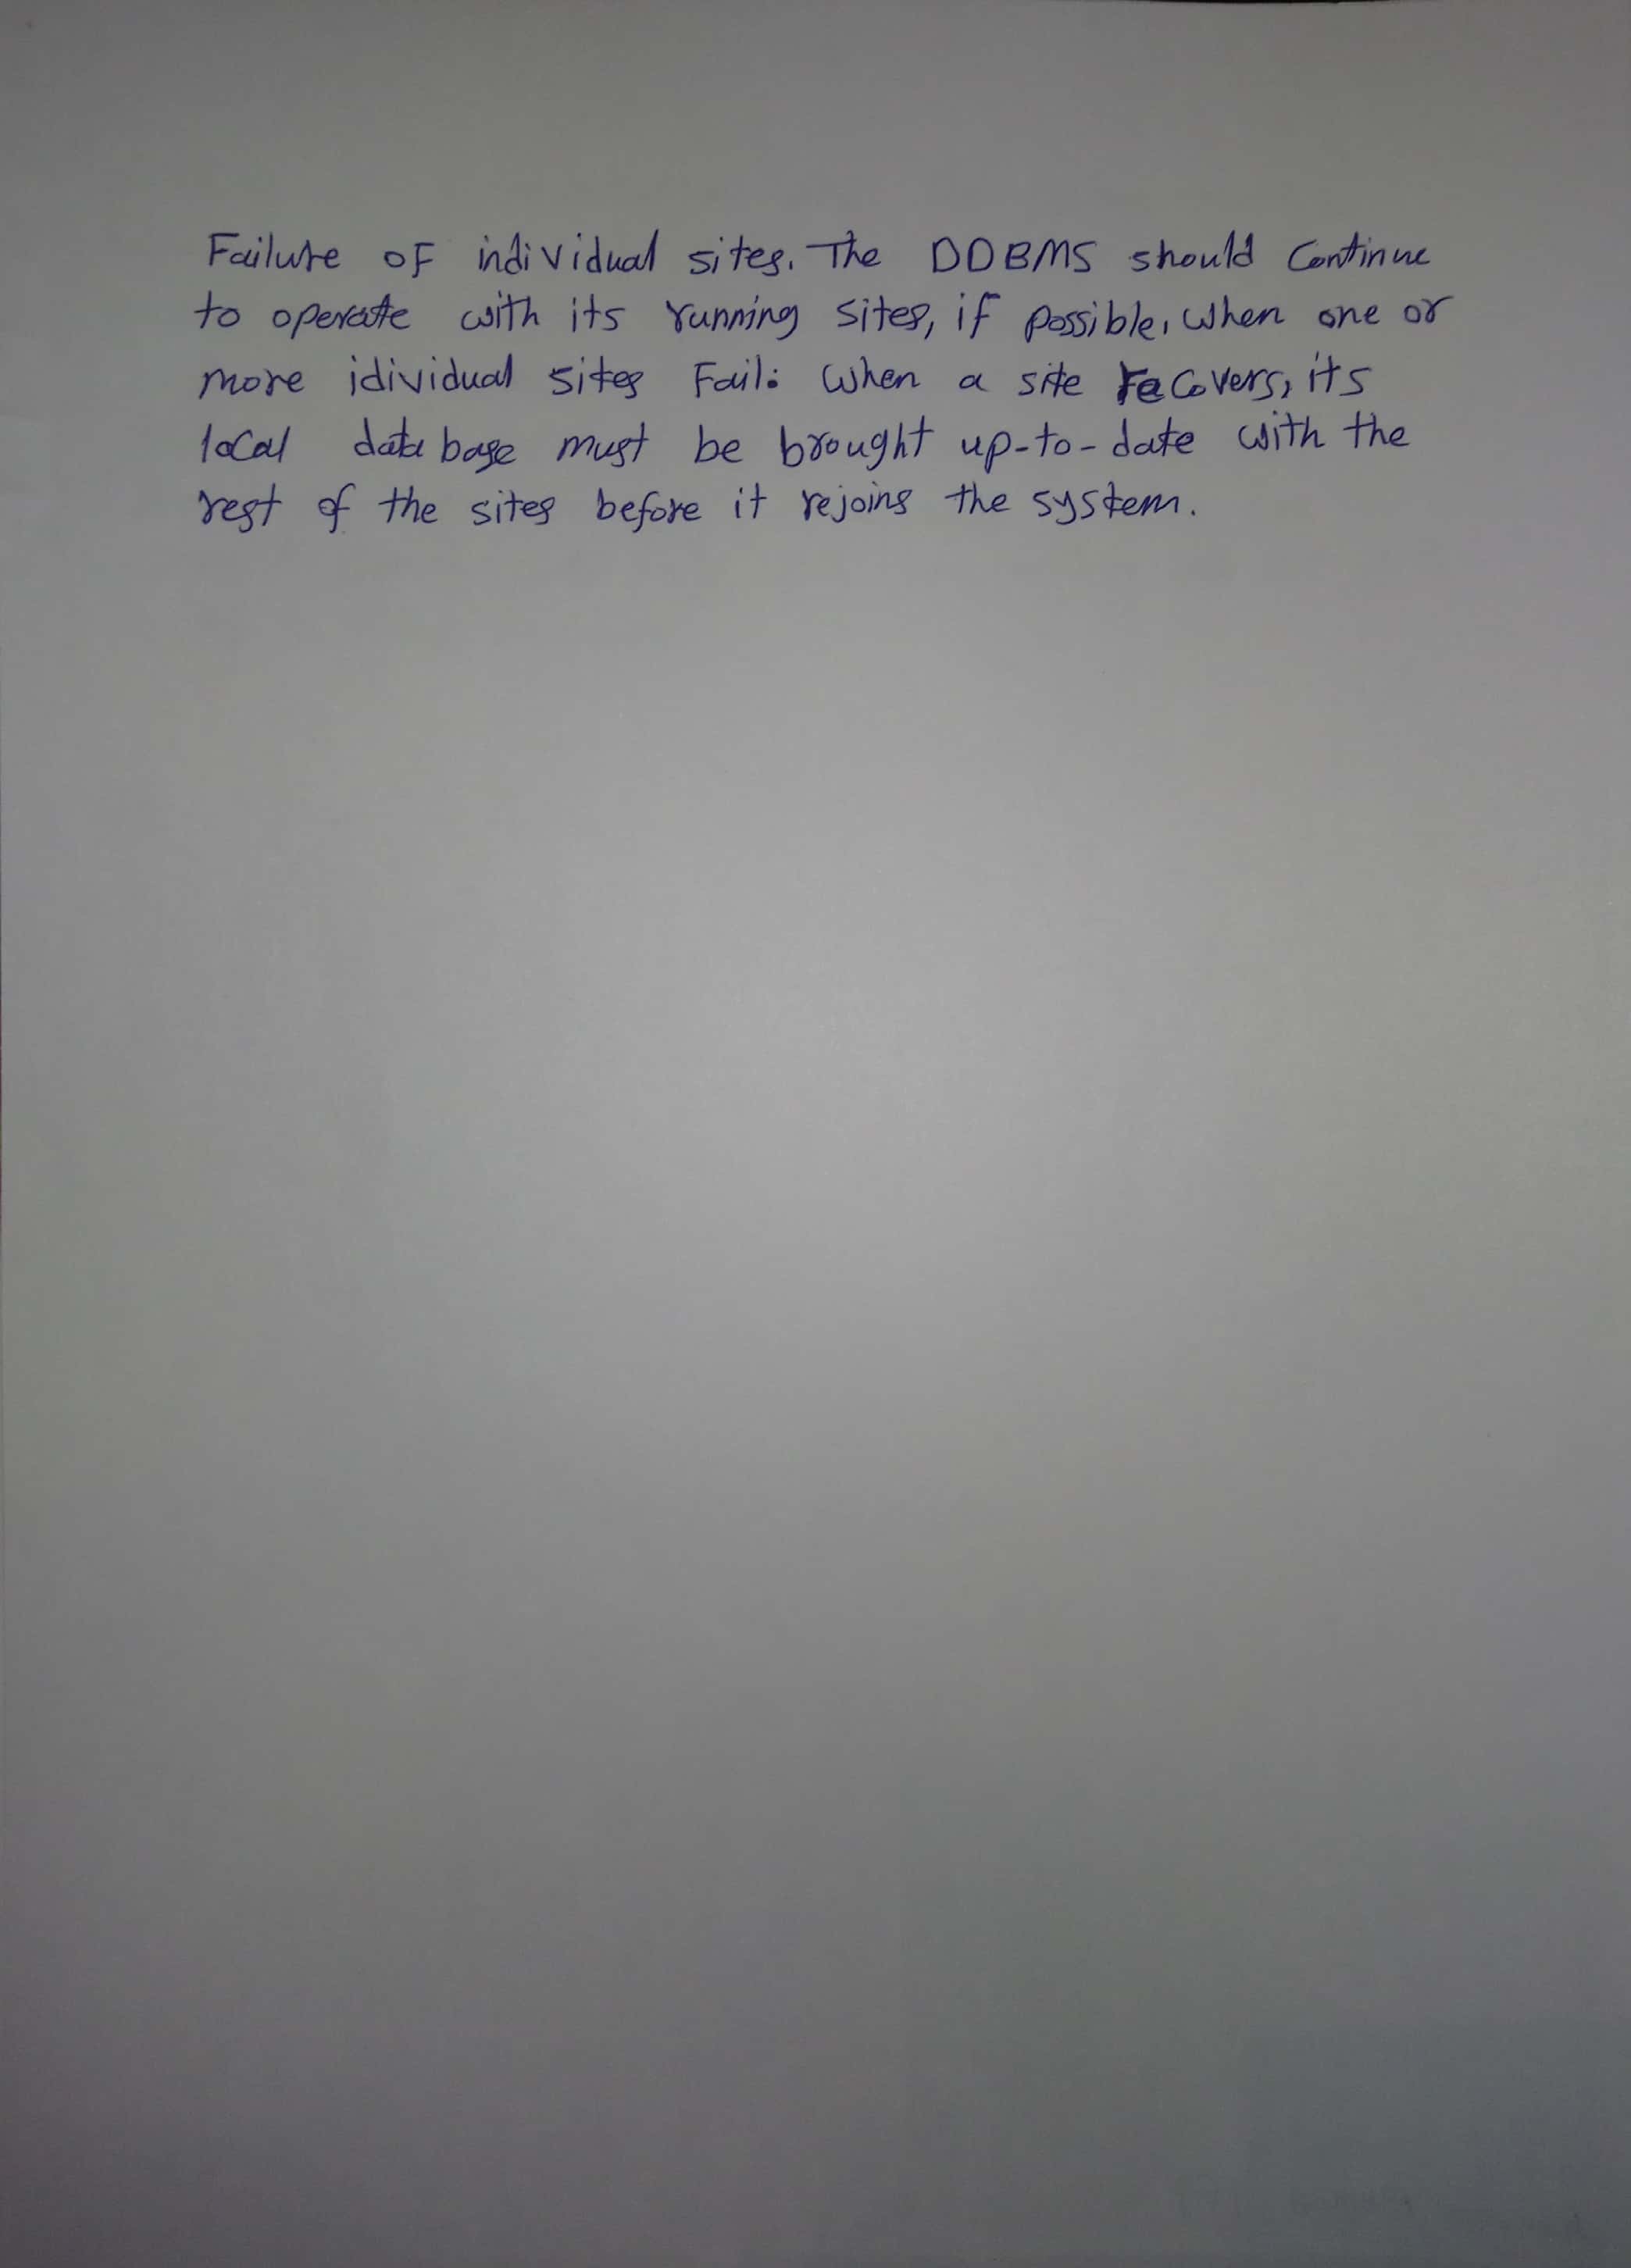 Failure of individual sites. The DDBMS should Continue
to operate with its running sites, if possible, when one or
more idividual sites Fail: When a site recovers, its
local data base must be brought up-to-date with the
rest of the sites before it rejoins the system.